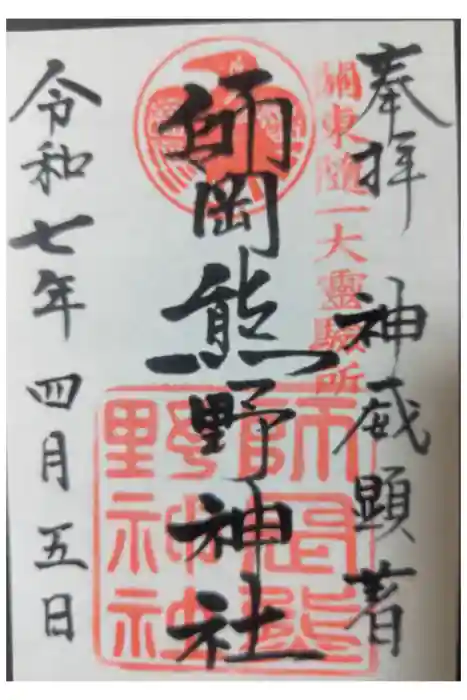 奉拝 神威顕著
關東随一大靈驗所
師岡熊野神社
師岡熊野神社
令和七年四月五日